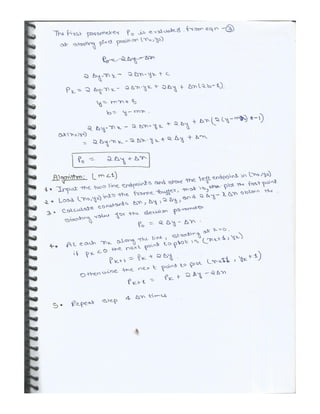 The first parameter P₀ is evaluated from eqn - ③
at starting pixel position (x₀,y₀)
P₀ = 2Δy - Δx
2Δy·xk - 2Δx·yk + c
Pk = 2Δy·xk - 2Δx·yk + 2Δy + Δx(2b-1)
y = mx + b
b = y - mx
2Δy·xk - 2Δx·yk + 2Δy + Δx(2(y-mx)-1)
= 2Δy·xk - 2Δx·yk + 2Δy + Δx
P₀ = 2Δy + Δx
Algorithm: [m<1]
1. Input the two line endpoints and store the left endpoint in (x₀,y₀)
2. Load (x₀,y₀) into the frame buffer, that is, plot the first point
3. Calculate constants Δx, Δy, 2Δy, and 2Δy - 2Δx obtain the
starting value for the decision parameter
P₀ = 2Δy - Δx.
4. At each xk along the line, starting at k=0.
if pk<0 the next point to plot is (xk+1, yk)
Pk+1 = Pk + 2Δy
Otherwise the next point to plot (xk+1, yk+1)
Pk+1 = Pk + 2Δy - 2Δx
5. Repeat step 4 Δx times